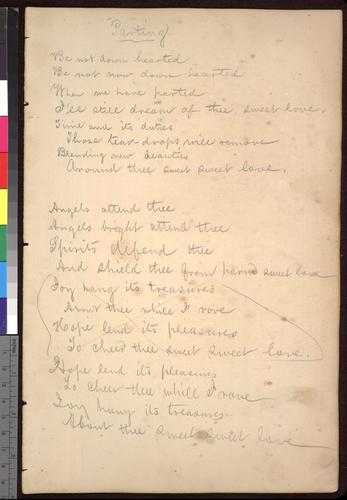 Parting
Be not down hearted
Be not now down hearted
When we have parted
I'll still dream of thee, sweet love.
Time and its duties
Those tear-drops will remove
Blending new beauties
Around thee sweet sweet love.
Angels attend thee
Angels bright attend thee
Spirits defend thee
And shield thee from harm sweet love
Joy hang its treasures
About thee while I rove
Hope lend its pleasures
To cheer thee sweet sweet love.
Hope lend its pleasures
To cheer thee while I rove
Joy hang its treasures
About thee sweet sweet love